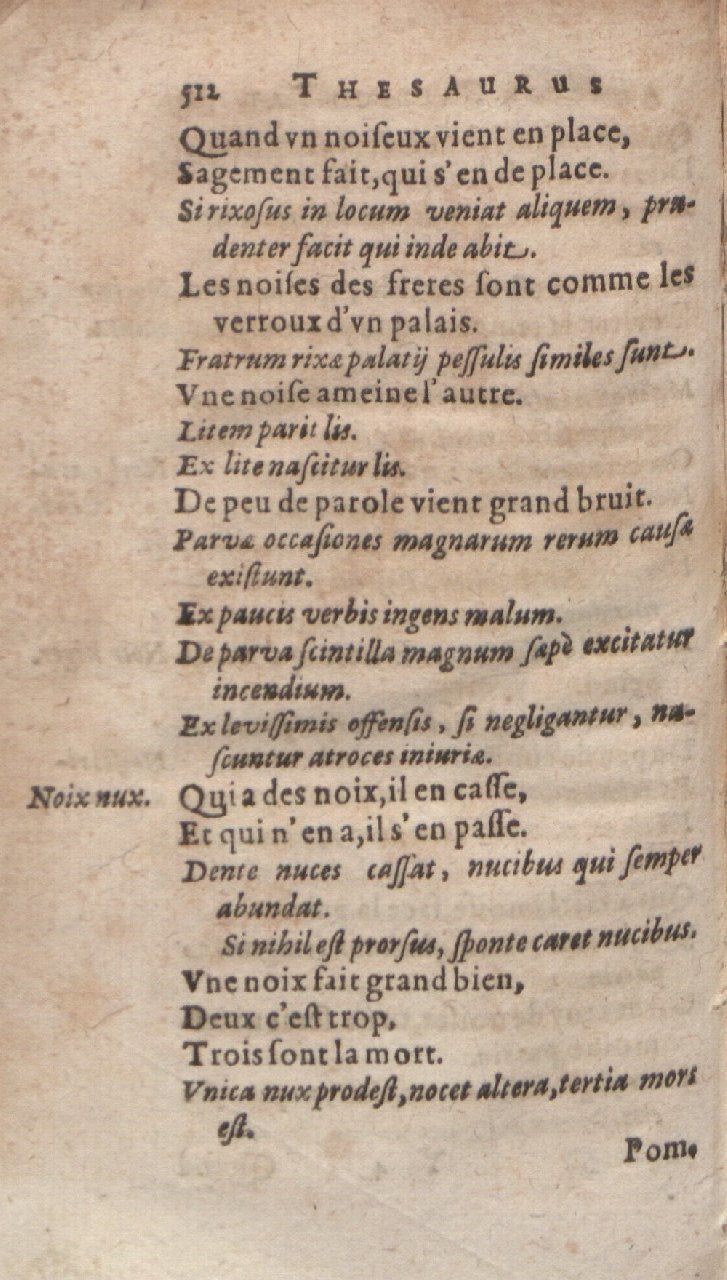 512 THESAURUS
Quand vn noiſeux vient en place,
Sagement fait, qui s'en de place.
Si rixoſus in locum veniat aliquem, pru-
denter facit qui inde abit.
Les noiſes des freres ſont comme les
verroux d'vn palais.
Fratrum rixæ palatij peſſulis ſimiles ſunt.
Vne noiſe ameine l'autre.
Litem parit lis.
Ex lite naſcitur lis.
De peu de parole vient grand bruit.
Parvæ occaſiones magnarum rerum cauſæ
exiſtunt.
Ex paucis verbis ingens malum.
De parva ſcintilla magnum ſæpè excitatur
incendium.
Ex leviſſimis offenſis, ſi negligantur, na-
ſcuntur atroces iniuriæ.
Noix nux. Qui a des noix, il en caſſe,
Et qui n'en a, il s'en paſſe.
Dente nuces caſſat, nucibus qui ſemper
abundat.
Si nihil eſt prorſus, ſponte caret nucibus.
Vne noix fait grand bien,
Deux c'eſt trop,
Trois ſont la mort.
Vnica nux prodeſt, nocet altera, tertia mors
eſt.
Pom-